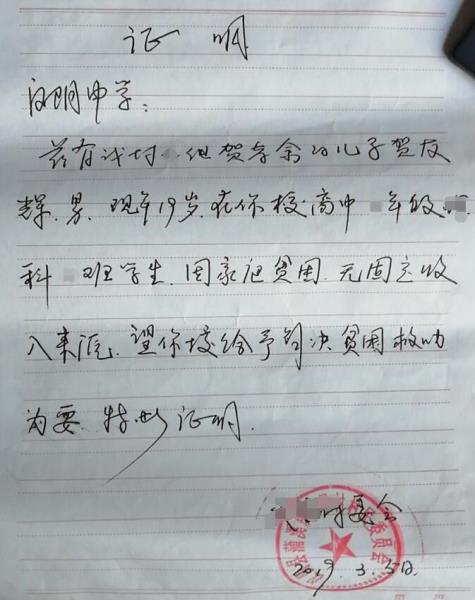 证明
启明中学：
兹有我村 组贺余的儿子贺友
辉、男、现年19岁、在你校高中 年级
科 班学生、因家庭贫困、无固定收
入来源、望你校给予解决贫困救助
为要、特此证明.
村委会
2019.3.5日
委员会